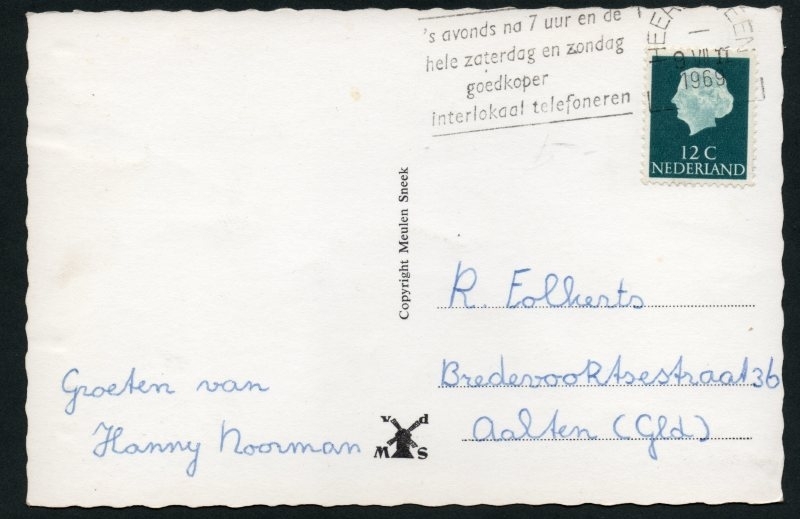 's avonds na 7 uur en de
hele zaterdag en zondag
goedkoper
interlokaal telefoneren
1969
12 C
NEDERLAND
Copyright Meulen Sneek
R. Folkerts
Bredevooktsestraat 36
Aalten (Gld)
Groeten van
Hanny Noorman
v d
M S